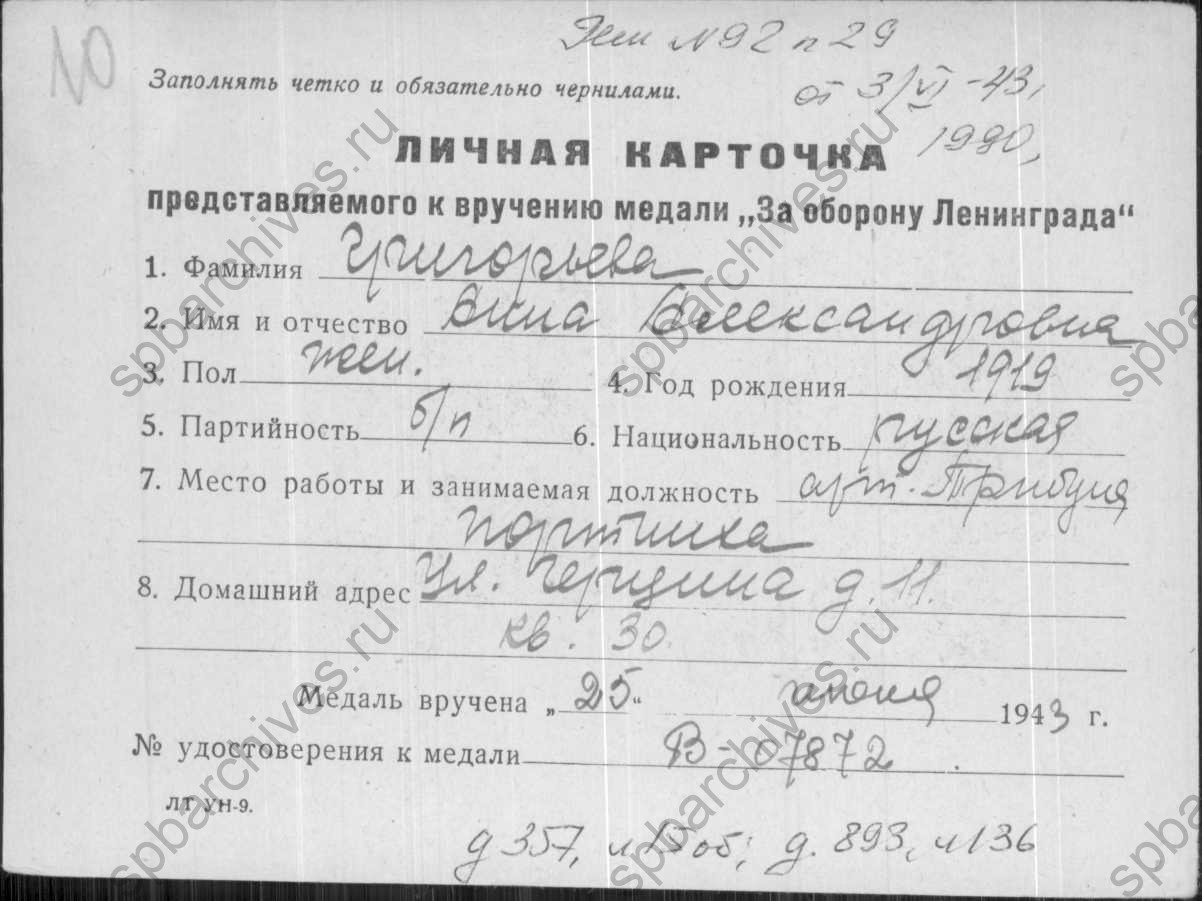 № 92 п 29
Заполнять четко и обязательно чернилами.
от 3/VI -43,
1990,
ЛИЧНАЯ КАРТОЧКА
представляемого к вручению медали „За оборону Ленинграда“
1. Фамилия Григорьева
2. Имя и отчество Анна Александровна
3. Пол жен. 4. Год рождения 1919
5. Партийность б/п 6. Национальность русская
7. Место работы и занимаемая должность арт. Трибуна
портниха
8. Домашний адрес Ул. Герцина д. 11.
кв. 30.
Медаль вручена „25“ июня 1943 г.
№ удостоверения к медали В-07872.
ЛТ УН-9.
д 357, л 15об; д. 893, л 136
spbarchives.ru